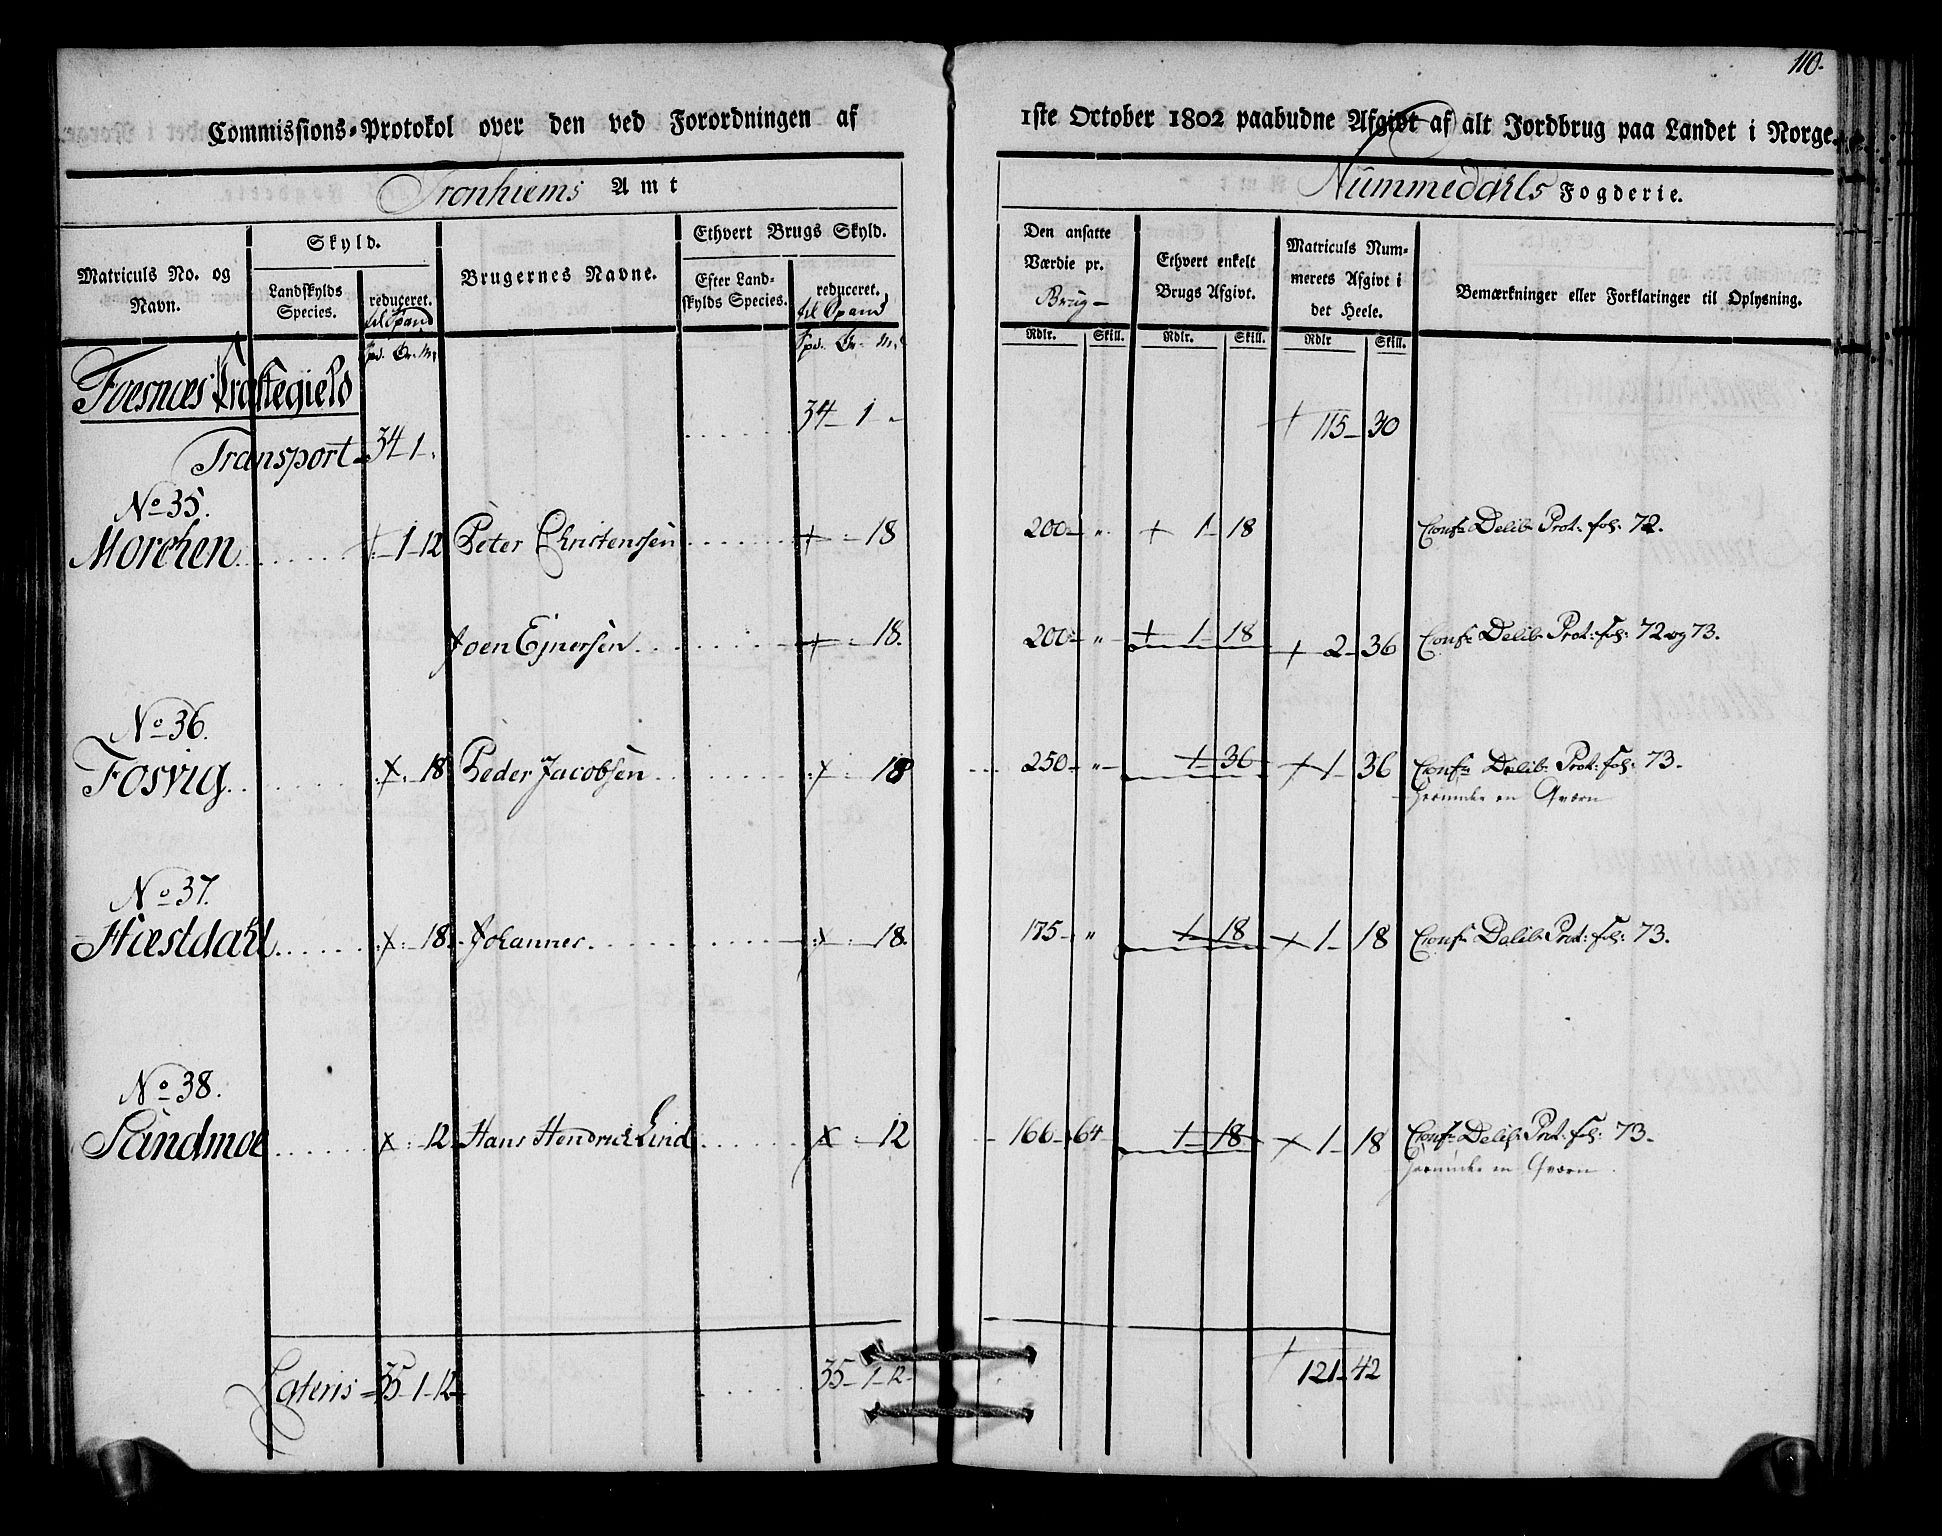 110.
Commissions-Protokol over den ved Forordningen af 1ste October 1802 paabudne Afgivt af alt Jordbrug paa Landet i Norge.
Tronhiems Amt
Nummedahls Fogderie.
Matriculs No. og Navn.
Skyld.
Landskylds Species.
reduceret. til Spand
Brugernes Navne.
Ethvert Brugs Skyld.
Efter Landskylds Species.
reduceret. til Spand
Den ansatte Værdie pr. Brug
Ethvert enkelt Brugs Afgivt.
Matriculs Nummerets Afgivt i det Heele.
Bemærkninger eller Forklaringer til Oplysning.
Spd. Ør. Mk
Spd. Ør. Mk
Rdlr. Skill. Rdlr. Skill. Rdlr Skill.
Foesnæs Præstegield
Transport 34 1 " 34 1 " 115 30
No 35.
Morchen 1 12 Peter Christenssen 18 200 " 1 18 Conf. Delib. Prot: fol: 72.
Joen Ejnersen 18. 200 " 1 18 2 36 Conf. Delib. Prot: fol: 72 og 73.
No 36.
Fosvig 18 Peder Jacobsen 18 250 " 1 36 1 36 Conf. Delib. Prot: fol: 73.
Herunder en Qværn
No 37.
Hæstdahl 18 Johannes 18. 175 " 1 18 1 18 Conf. Delib. Prot: fol: 73.
No 38.
Sandmoe 12 Hans Hendrich Lind 12 166 64 1 18 1 18 Conf. Delib. Prot: fol: 73.
Herunder en Qværn
Lateris 35 1 12 35 1 12 121 42